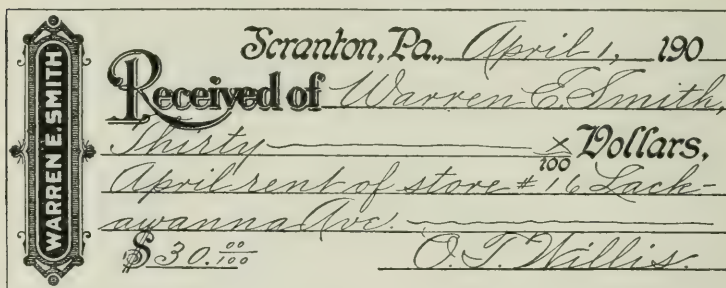 WARREN E. SMITH
Scranton, Pa., April 1, 190
Received of Warren E. Smith,
Thirty x/100 Dollars,
April rent of store #16 Lack-
awanna Ave.
$30.00/100 O. T. Willis.